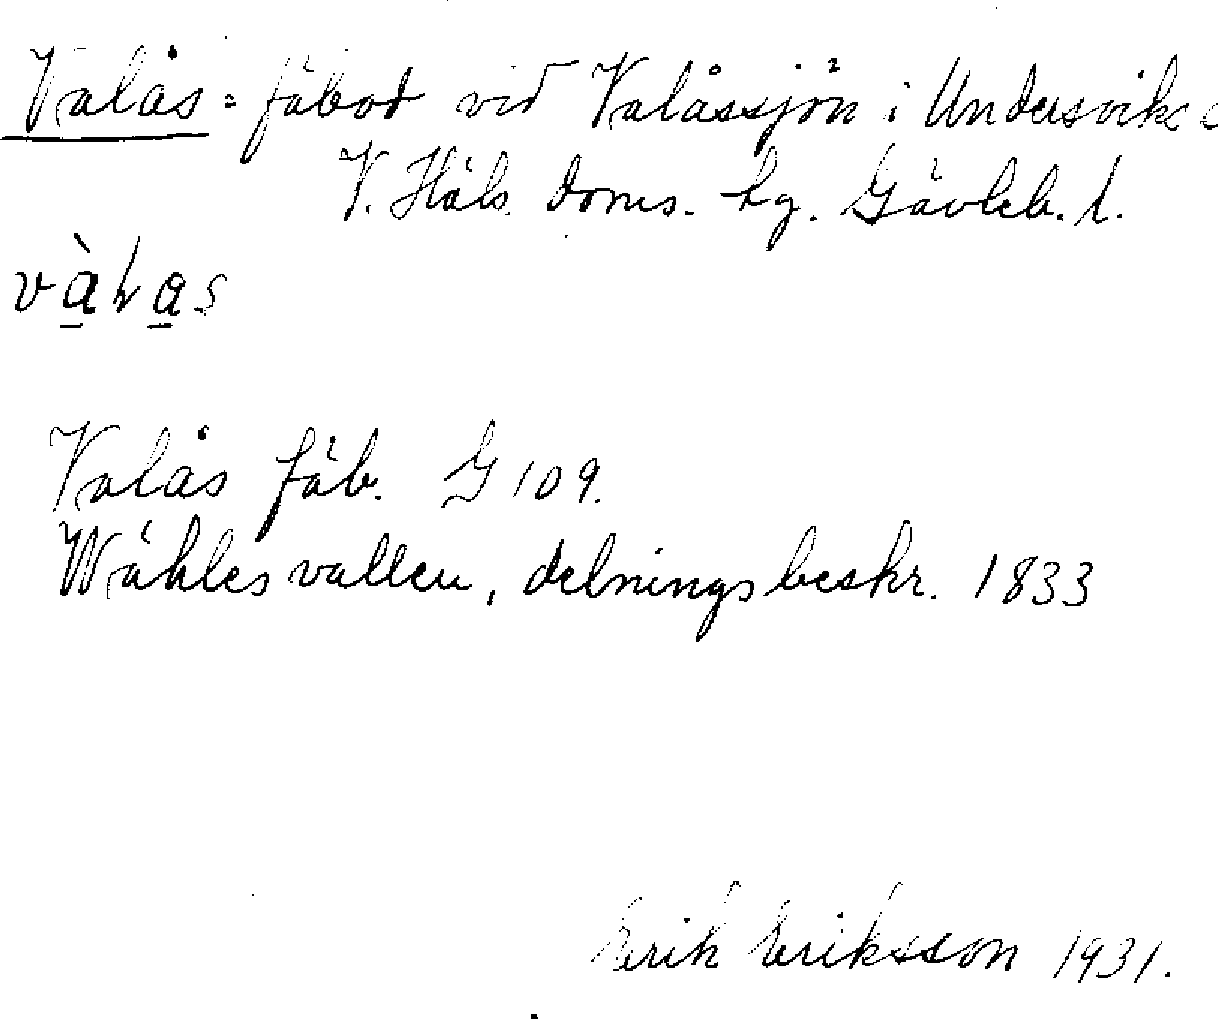 Valås = fäbod vid Valåssjön i Undersvik s
V. Häls. doms. hg. Gävleb. l.
və̀ḷas
Valås fäb. G 109.
Wåhlesvallen, delningsbeskr. 1833
Erik Eriksson 1931.